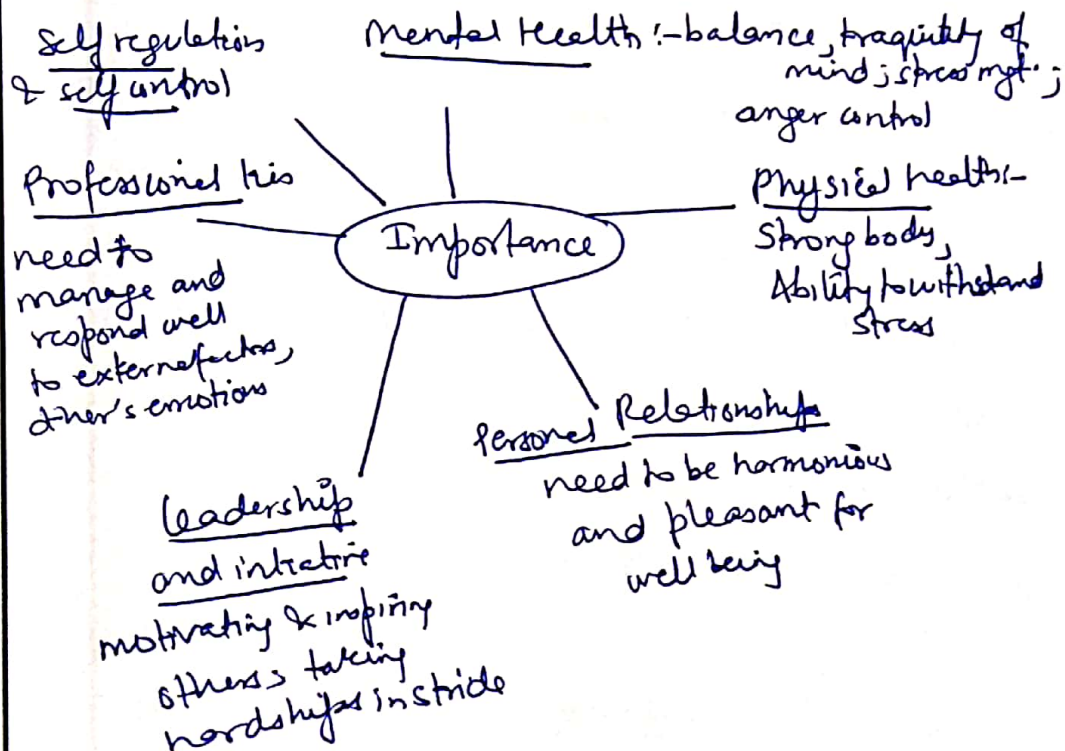 Self regulation
& self control
Mental Health :- balance, traquility of
mind ; stress mgt. ;
anger control
Professional
need to
manage and
respond well
to external factors,
other's emotions
Importance
Physical health :-
Strong body,
Ability to withstand
stress
Personal Relationships
need to be harmonious
and pleasant for
well being
leadership
and initiative
motivating & inspiring
others; taking
hardships in stride